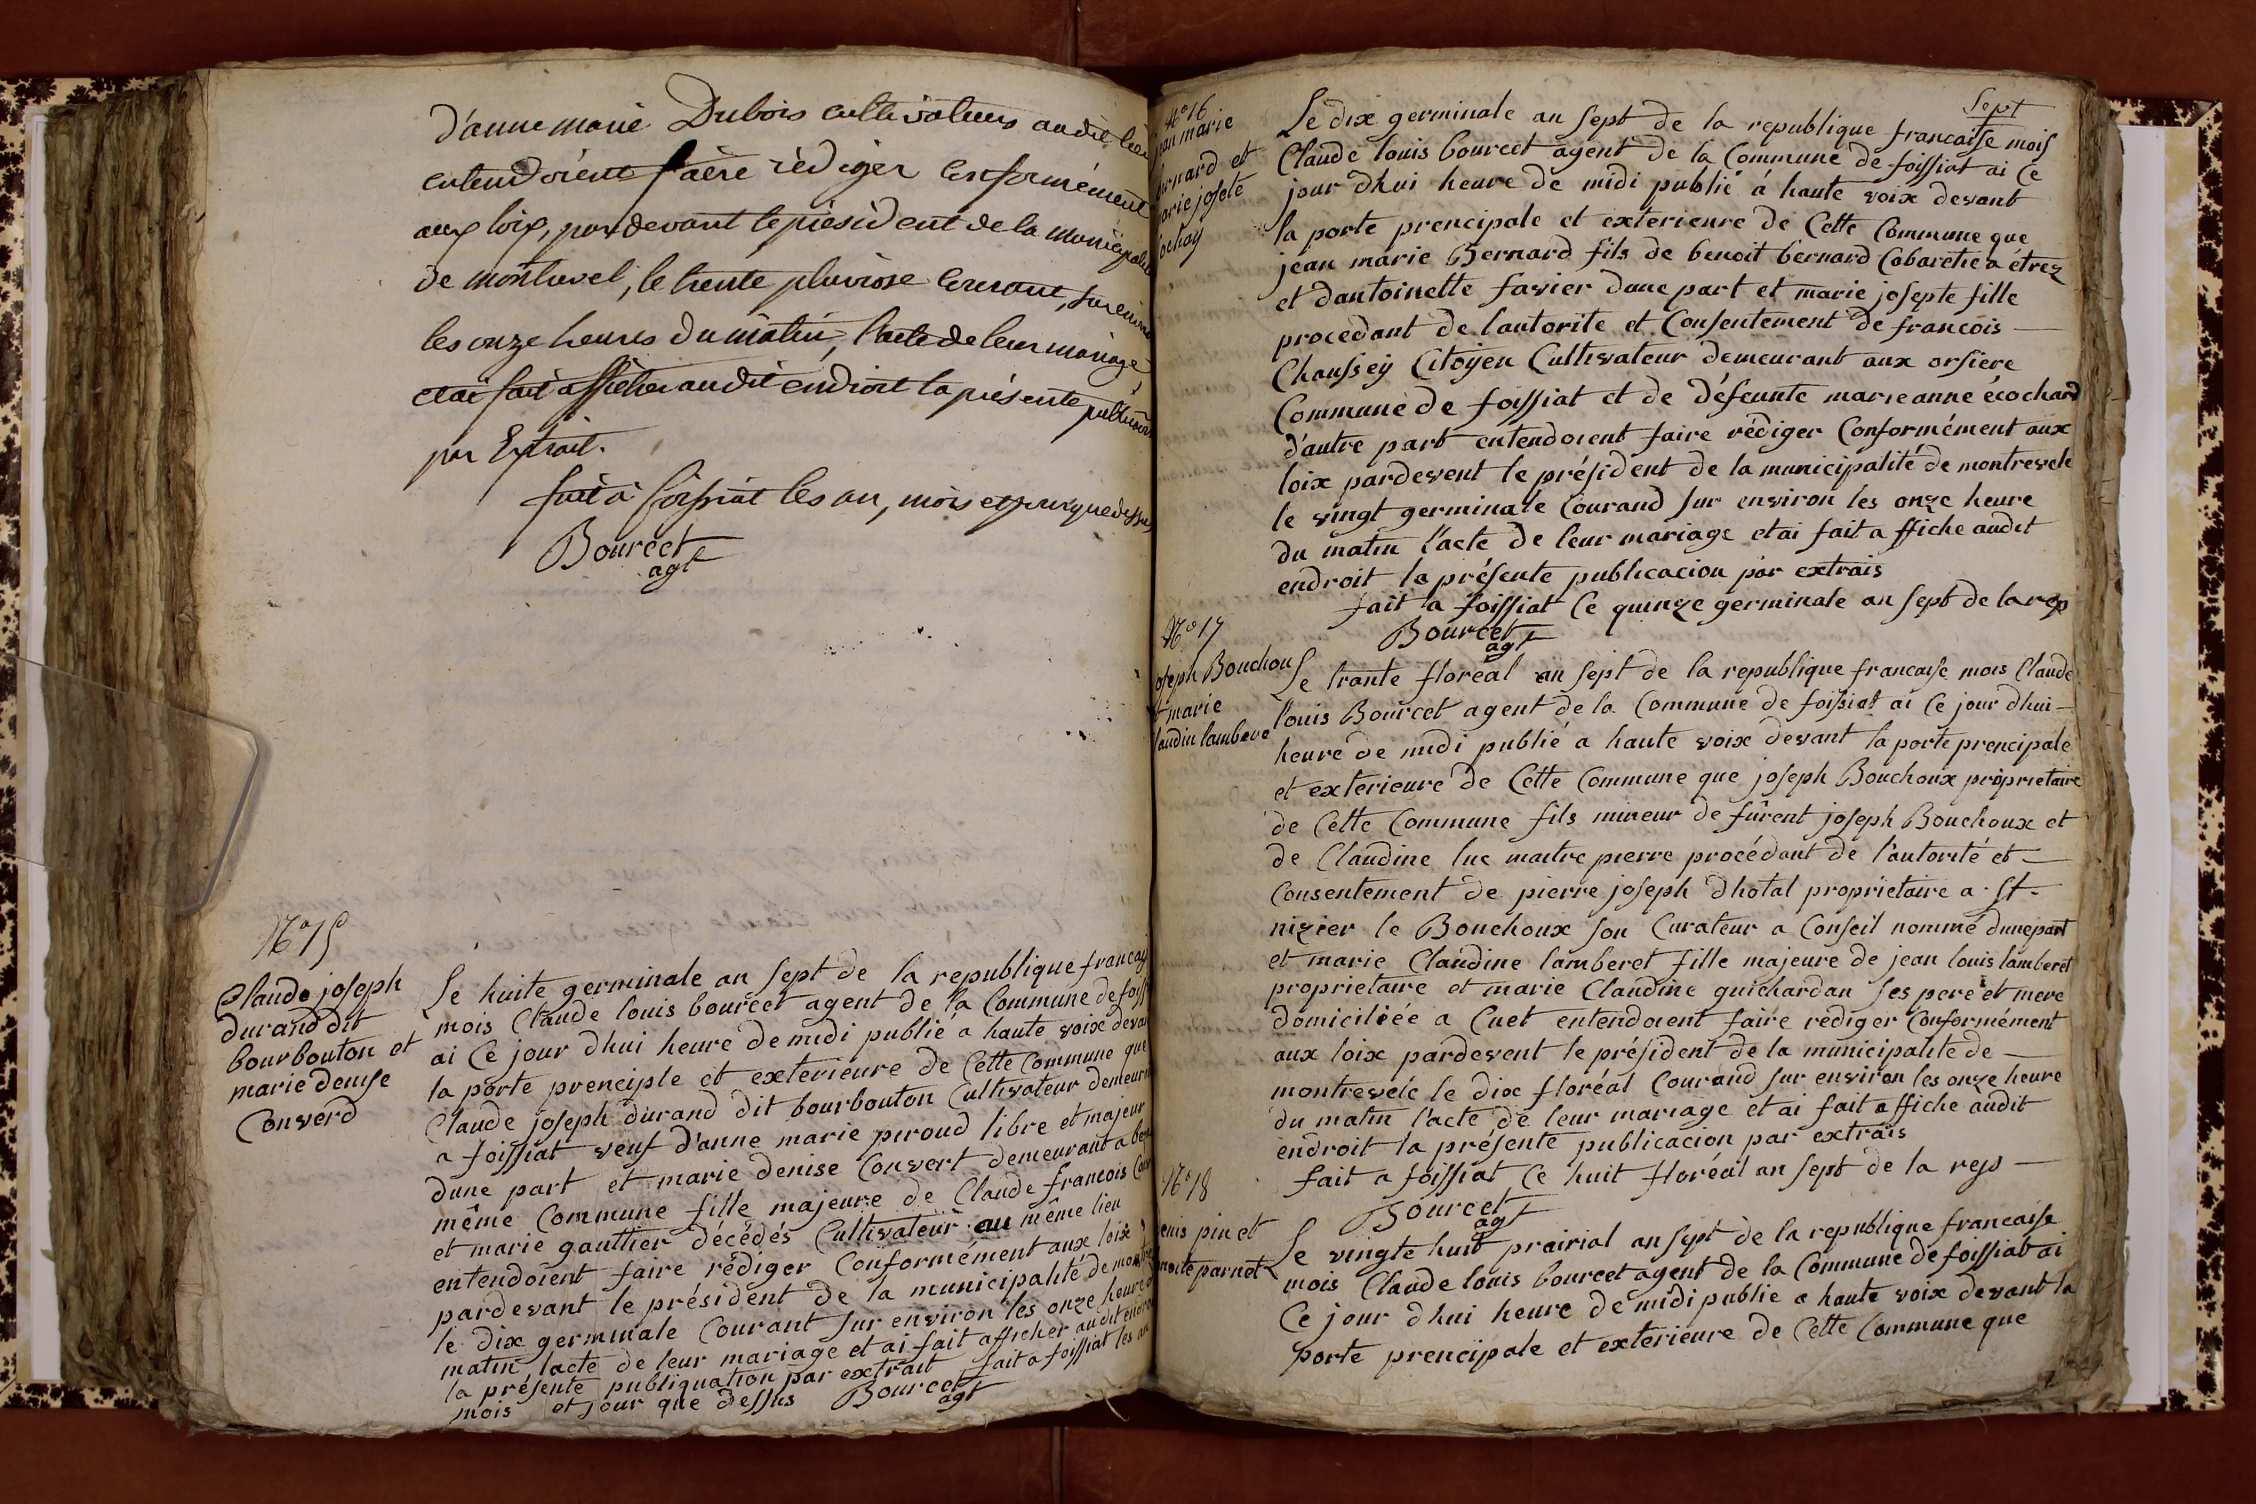 d'anne marie Dubois cultivateurs audit lieu
entendoient faère rédiger conformément
aux loix, pardevant le président de la municipalité
de montrevel, le trente pluviose courant, sur environ
les onze heures du matin, l'acte de leur mariage
et ai fait afficher audit endroit la présente publication
par Extrait.
fait à foissiat les an, mois et jour que dessus
Bourcet
agt
N.º 15
Claude joseph
durand dit
bourbouton et
marie denise
Converd
Le huite germinale an sept de la republique francais
mois Claude louis bourcet agent de la Commune de foiss
ai Ce jour dhui heure de midi publie a haute voix devan
la porte prenciple et exterieure de Cette Commune que
Claude joseph durand dit bourbouton Cultivateur demeurn
a foissiat veuf d'anne marie peroud libre et majeur
dune part et marie denise Convert demeurant a
même Commune fille majeure de Claude francois Con
et marie gauttier décédés Cultivateur au même lieu
entendoient faire rédiger Conformément aux loix
pardevant le président de la municipalité de mont
le dix germinale Courant sur environ les onze heure
matin lacte de leur mariage et ai fait afficher audit endroi
la présente publiquation par extrait fait a foissiat les an
mois et jour que dessus Bourcet
agt
Sept
N.º 16
jean marie
bernard et
marie josete
Chosay
Le dix germinale an sept de la republique francaise mois
Claude louis bourcet agent de la Commune de foissiat ai Ce
jour dhui heure de midi publié á haute voix devant
la porte prencipale et exterieure de Cette Commune que
jean marie Bernard fils de benoit bernard Cabaretie a étrez
et dantoinette favier dune part et marie josepte fille
procedant de lautorite et Consentement de francois —
Chaussey Citoyen Cultivateur demeurant aux orsiere
Commune de foissiat et de défeunte marie anne écochard
d'autre part entendoient faire rédiger Conformément aux
loix pardevent le président de la municipalité de montrevele
le vingt germinale Courand sur environ les onze heure
du matin l'acte de leur mariage et ai fait a ffiche audit
endroit la présente publicacion par extrais
fait a foissiat Ce quinze germinale an sept de la rep
Bourcet
agt
N.º 17
joseph Bouchou
et marie
laudin lambere
Le trante floréal an sept de la republique francaise mois Claude
louis Bourcet agent de la Commune de foissiat ai Ce jour dhui —
heure de midi publié a haute voix devant la porte prencipale
et exterieure de Cette Commune que joseph Bouchoux proprietaire
de Cette Commune fils mineur de fûrent joseph Bouchoux et
de Claudine luc maitre pierre procédant de l'autorité et —
Consentement de pierre joseph dhotal proprietaire a St -
nizier le Bouchoux son Curateur a Conseil nommé dunepart
et marie Claudine lamberet fille majeure de jean louis lamberet
proprietaire et marie Claudine guichardan ses pere et mere
domiciliée a Cuet entendoient faire rediger Conformément
aux loix pardevent le président de la municipalité de —
montrevele le dix floréal Courand sur environ les onze heure
du matin l'acte de leur mariage et ai fait affiche audit
endroit la présente publicacion par extrais
fait a foissiat Ce huit floréal an sept de la rep —
Bourcet
agt
N.º 18
enis pin et
parnet
Le vingte huit prairial an sept de la republique francaise
mois Claude louis bourcet agent de la Commune de foissiat ai
Ce jour dhui heure de midi publie a haute voix devant la
porte prencipale et exterieure de Cette Commune que